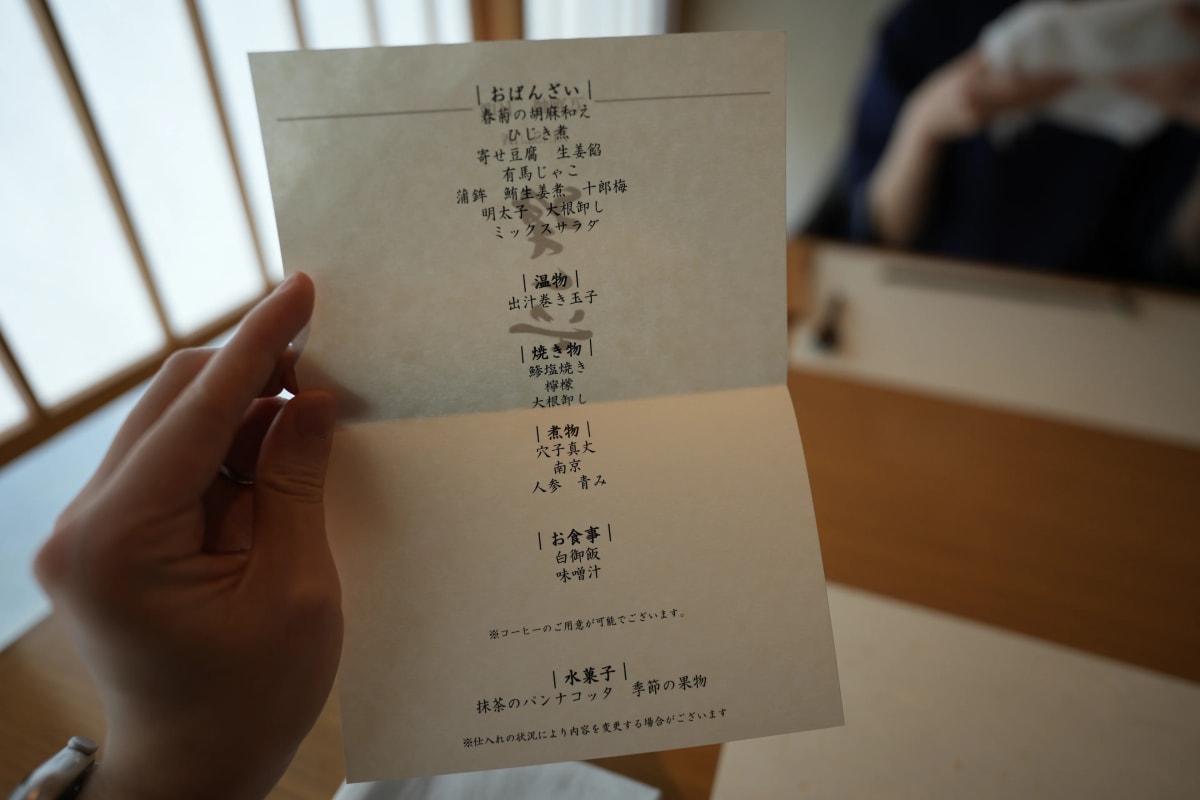 | おばんざい |
春菊の胡麻和え
ひじき煮
寄せ豆腐　生姜餡
有馬じゃこ
蒲鉾　鮪生姜煮　十郎梅
明太子　大根卸し
ミックスサラダ
| 温物 |
出汁巻き玉子
| 焼き物 |
鯵塩焼き
檸檬
大根卸し
| 煮物 |
穴子真丈
南京
人参　青み
| お食事 |
白御飯
味噌汁
※コーヒーのご用意が可能でございます。
| 水菓子 |
抹茶のパンナコッタ　季節の果物
※仕入れの状況により内容を変更する場合がございます